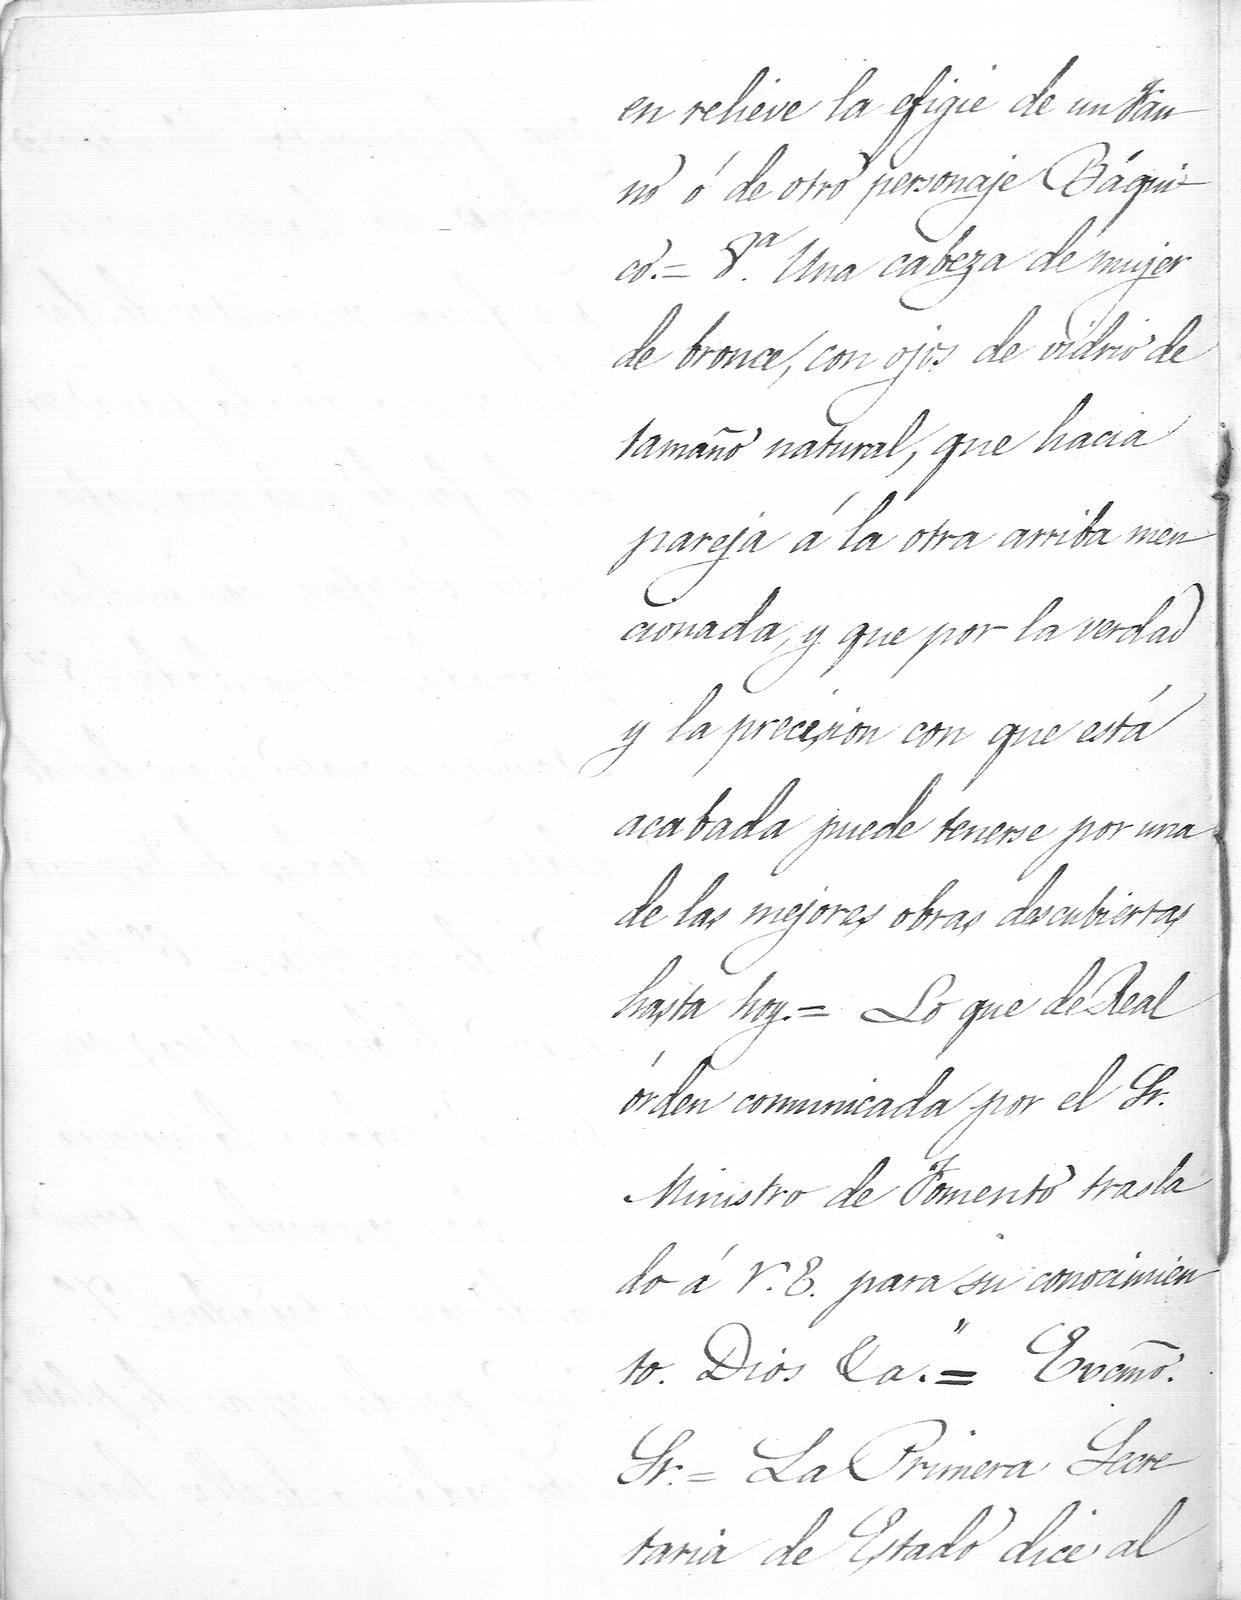 en relieve la efigie de un Fau
no ó de otro personaje Báqui
co.= 8.ª Una cabeza de mujer
de bronce, con ojos de vidrio de
tamaño natural, que hacia
pareja á la otra arriba men
cionada, y que por la verdad
y la precision con que está
acabada puede tenerse por una
de las mejores obras descubiertas
hasta hoy.= Lo que de Real
órden comunicada por el Sr.
Ministro de Fomento trasla
do á V.E. para su conocimien
to. Dios &a."= Excmo.
Sr.= La Primera Secre
taria de Estado dice al